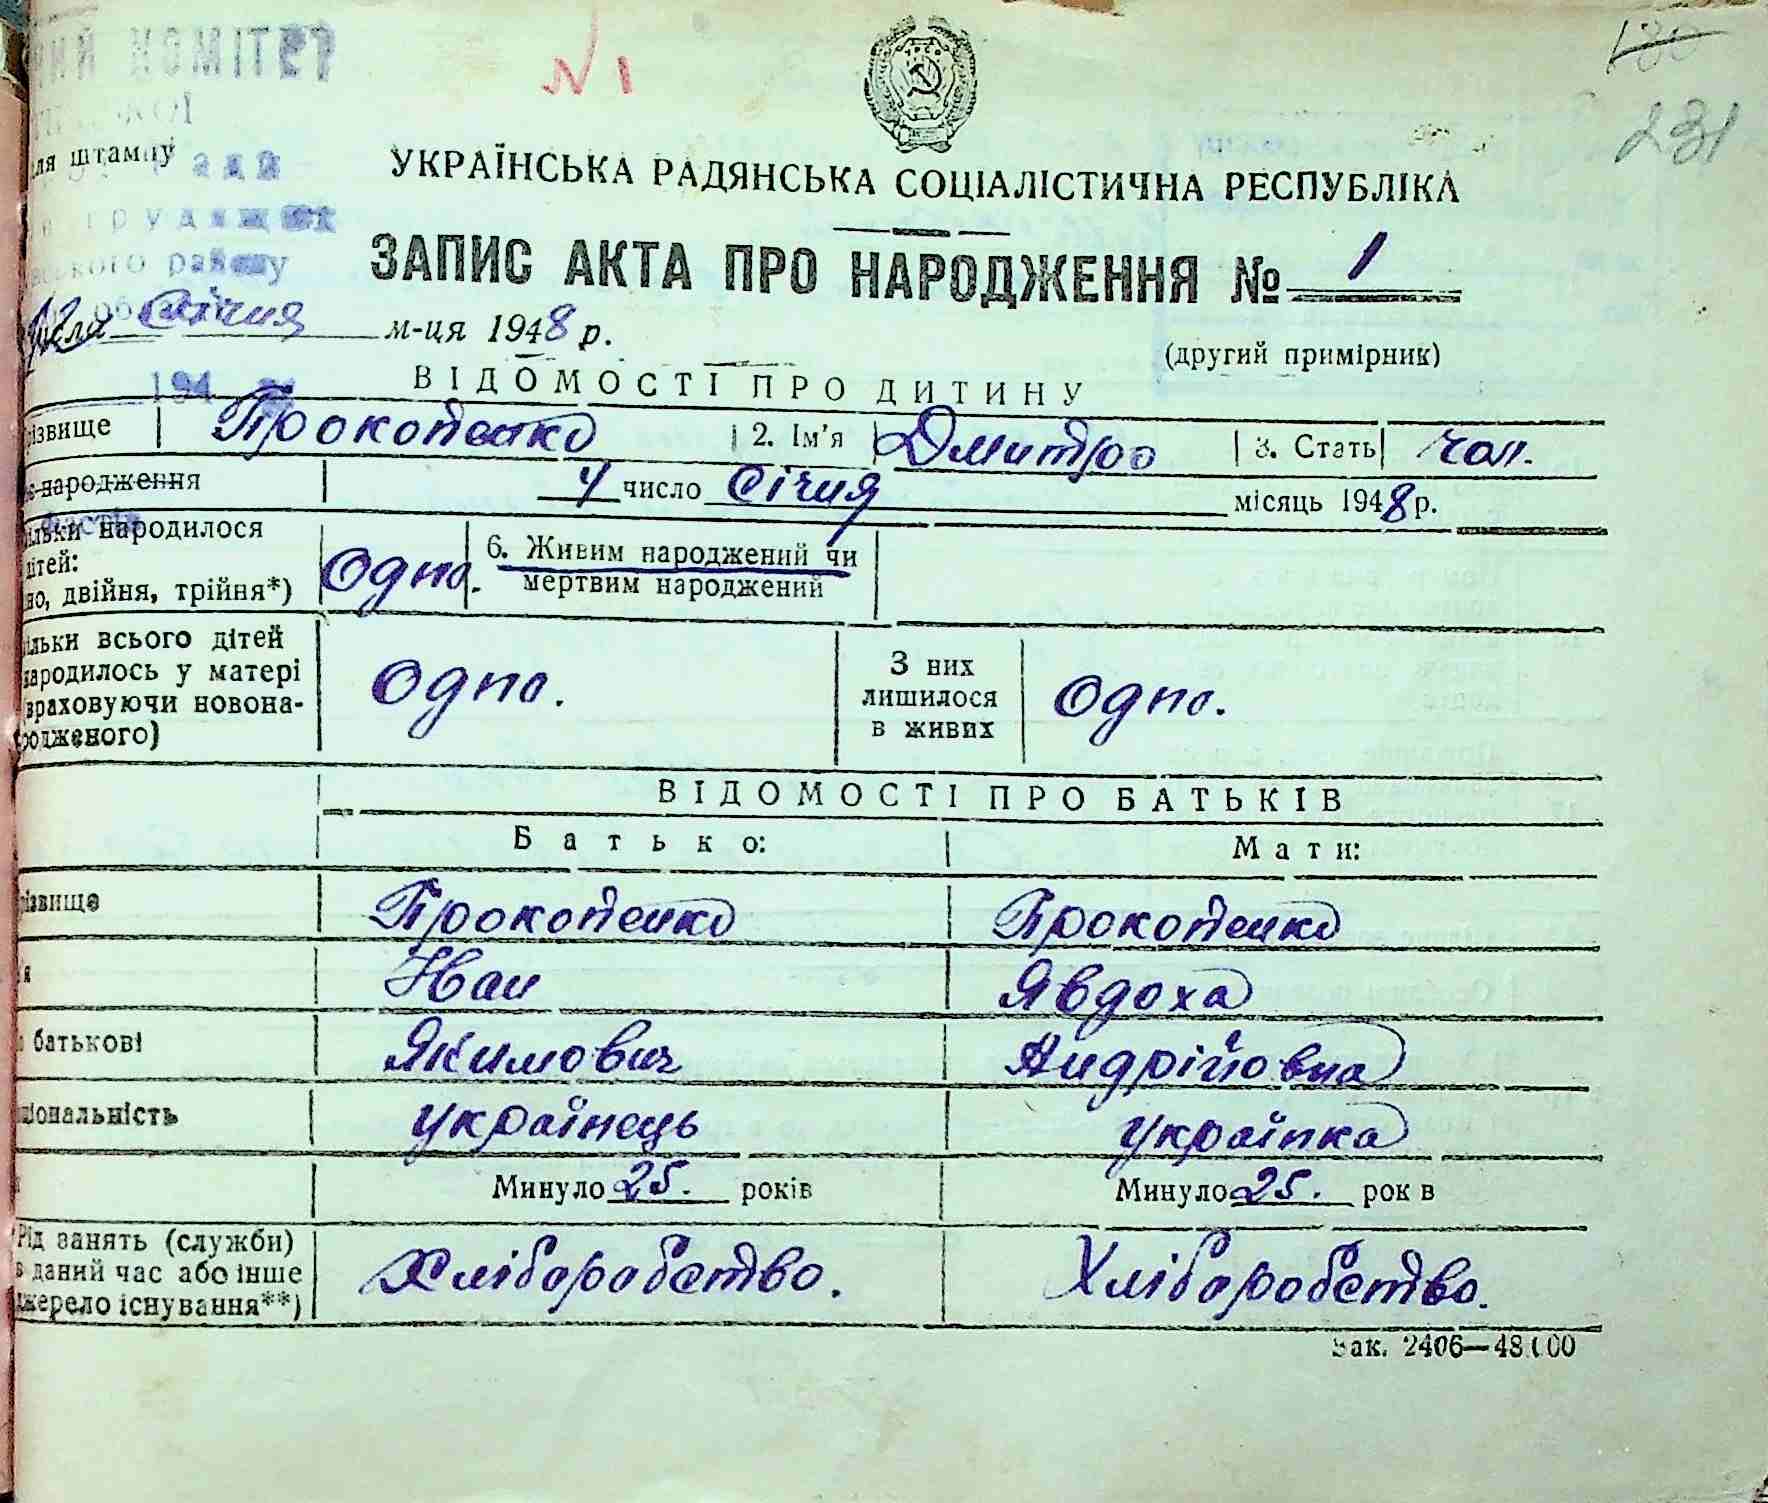 ИЙ КОМІТЕТ
№ 1
180
231
УРСР
для штампу
УКРАЇНСЬКА РАДЯНСЬКА СОЦІАЛІСТИЧНА РЕСПУБЛІКА
ЗАПИС АКТА ПРО НАРОДЖЕННЯ № 1
ського району
Січня м-ця 1948 р.
(другий примірник)
194
ВІДОМОСТІ ПРО ДИТИНУ
різвище Прокопенко 2. Ім'я Дмитро 3. Стать чол.
народження 4 число Січня місяць 1948 р.
ільки народилося
дітей:
но, двійня, трійня*)
Одно.
6. Живим народжений чи
мертвим народжений
ільки всього дітей
народилось у матері
враховуючи новона-
родженого)
Одно.
З них
лишилося
в живих
Одно.
ВІДОМОСТІ ПРО БАТЬКІВ
Батько: Мати:
різвище Прокопенко Прокопенко
я Іван Явдоха
о батькові Якимович Андрійовна
ціональність українець українка
Минуло 25. років Минуло 25. рок в
Рід занять (служби)
в даний час або інше
джерело існування**)
Хліборобство. Хліборобство.
Зак. 2406—48.000